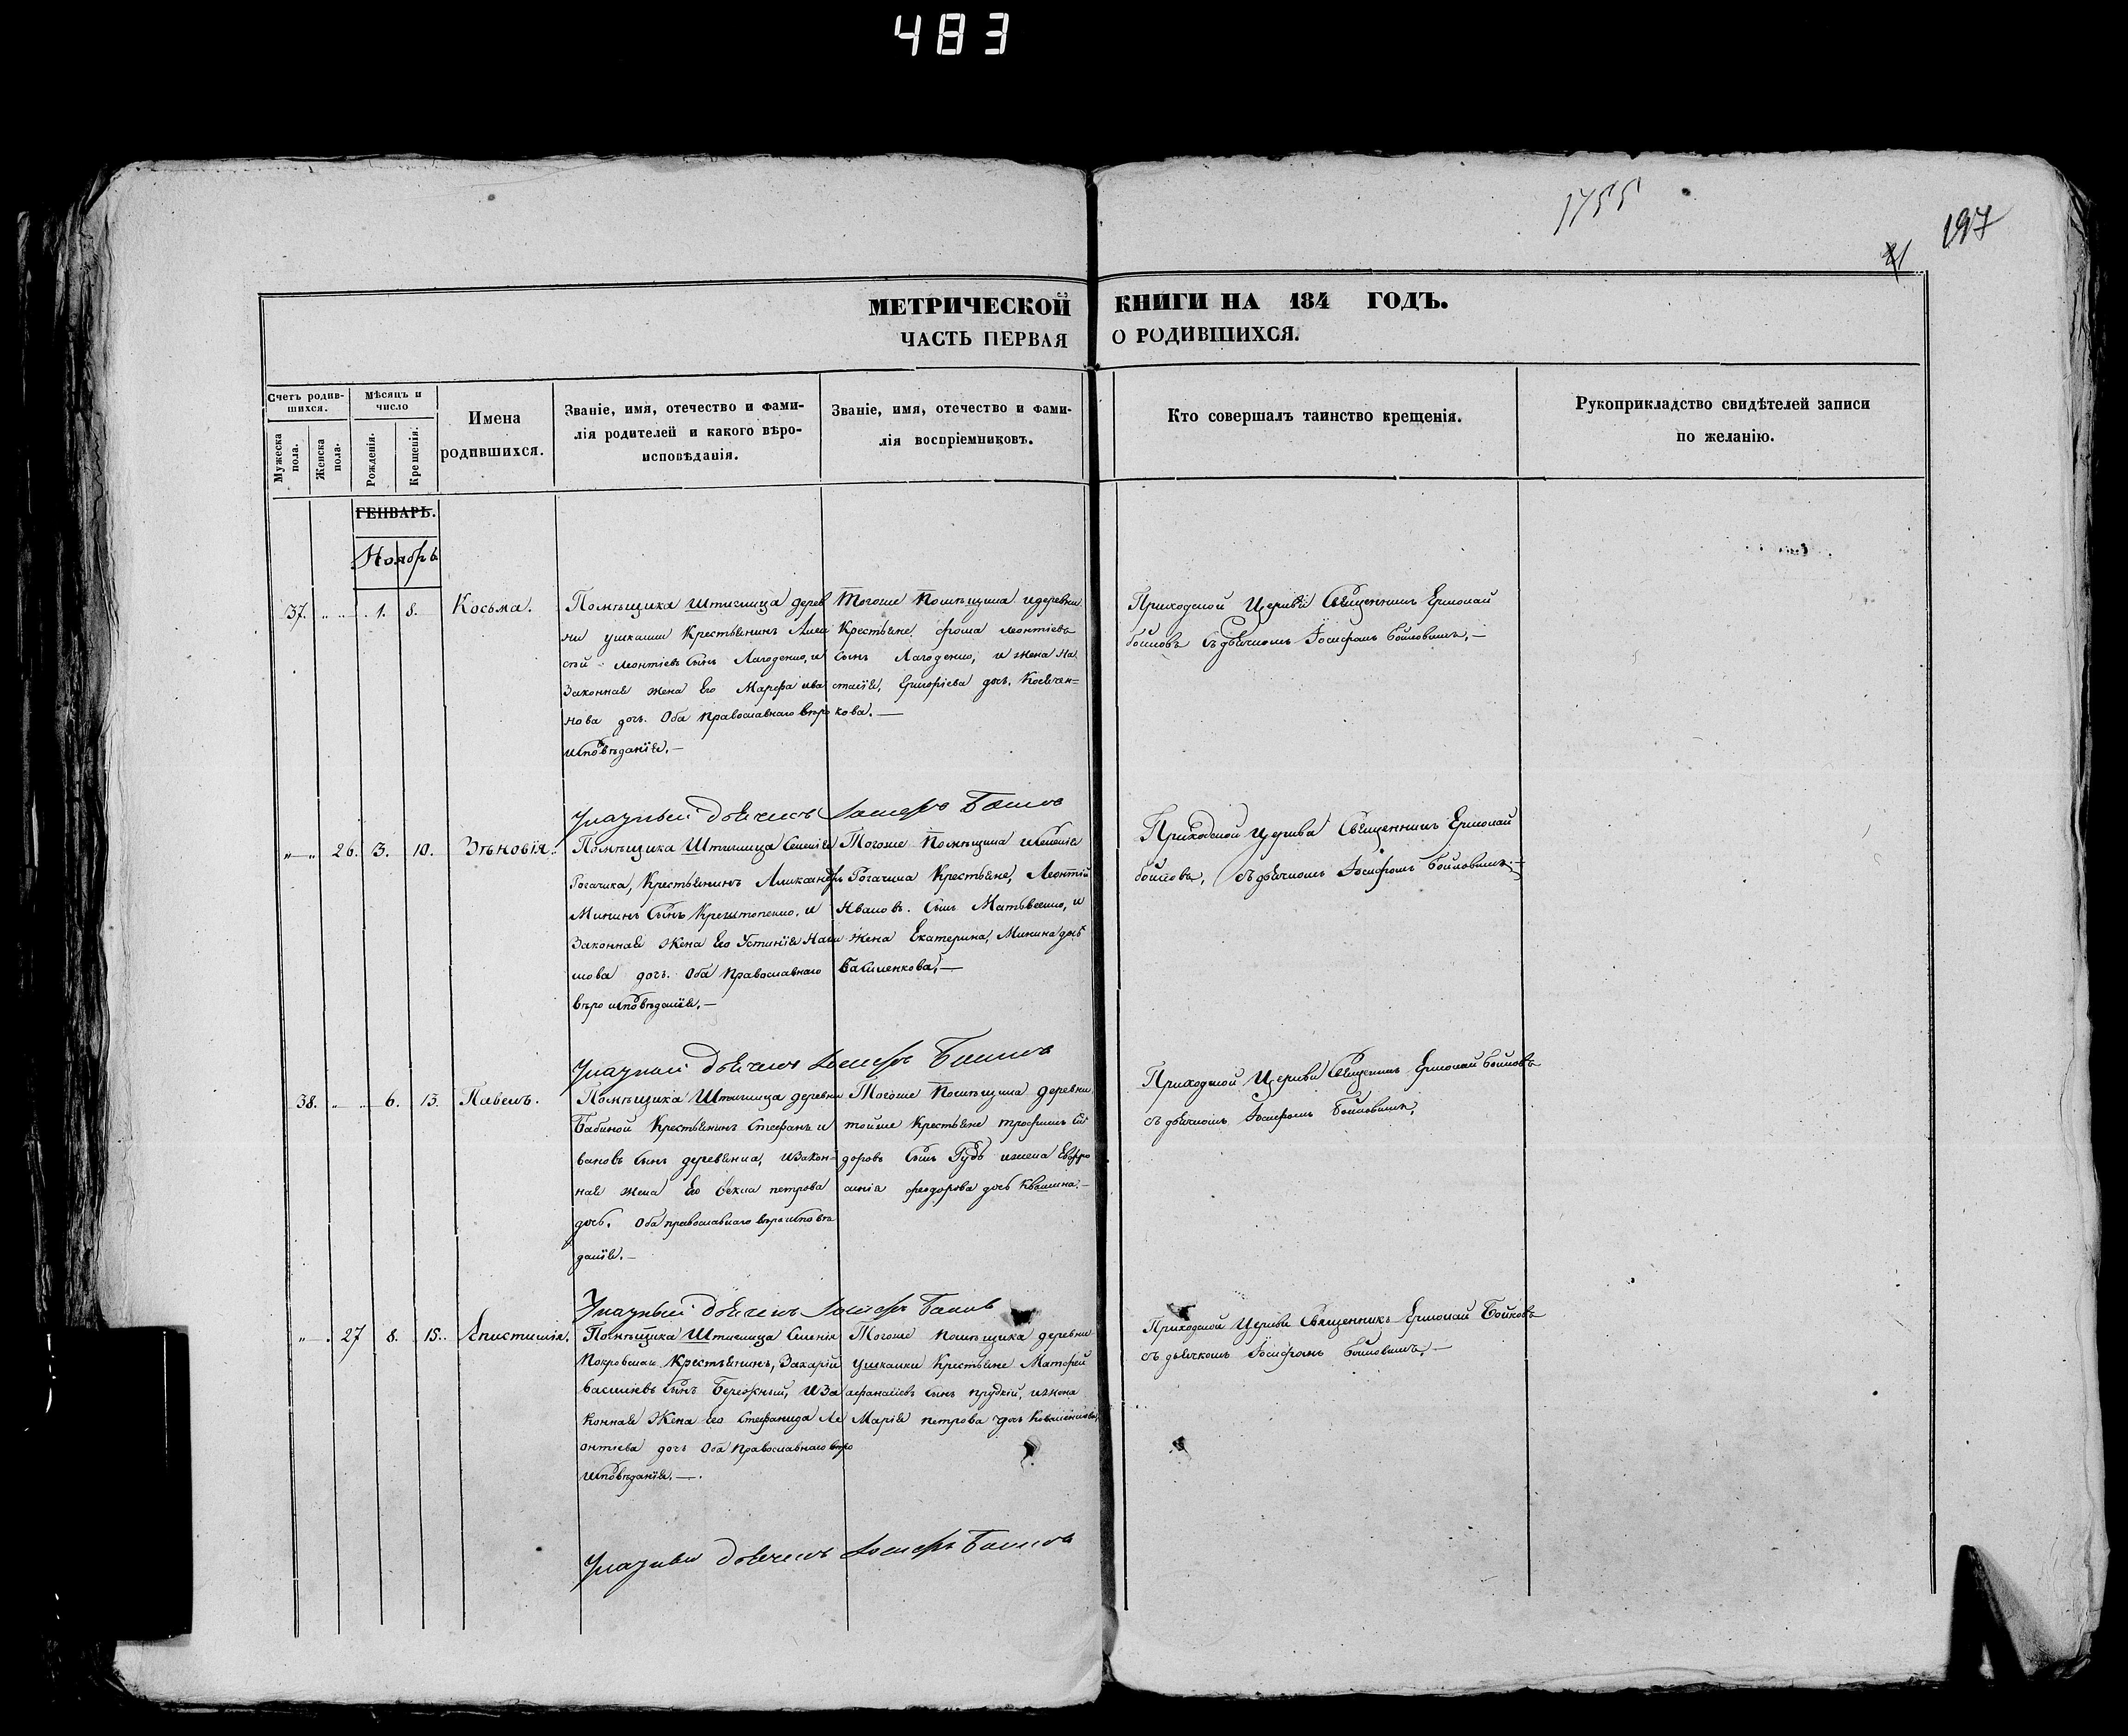 483
1755
197
МЕТРИЧЕСКОЙ КНИГИ НА 184 ГОДЪ.
ЧАСТЬ ПЕРВАЯ О РОДИВШИХСЯ.
Счетъ родив-
шихся.
Мужеска пола.
Женска пола.
Мѣсяцъ и
число
Рожденія.
Крещенія.
Имена
родившихся.
Званіе, имя, отечество и фами-
лія родителей и какого вѣро-
исповѣданія.
Званіе, имя, отечество и фами-
лія воспріемниковъ.
Кто совершалъ таинство крещенія.
Рукоприкладство свидѣтелей записи
по желанію.
ГЕНВАРЬ.
Ноябрь
37. 1. 8. Косьма.
Помѣщика Штиглица дерев
ни ушкалки Крестьянинъ Алек
сѣй Леонтіевъ сынъ Лагоденко, и
Законная жена Его Марфа ива
нова дочь. Оба Православнаго вѣро
исповѣданія.—
Тогоже Помѣщика идеревни
Крестьяне, фома леонтіевъ
сынъ Лагоденко, и жена На
стасія, Григоріева дочь.
кова.—
Приходской Церкви Священникъ Ермолай
бойковъ съ дьячкомъ Іосифомъ Бойковымъ.—
Указный дьячекъ Іосифъ Бойковъ
26. 3. 10. Зѣновія.
Помѣщика Штиглица Селенія
Рогачика, Крестьянинъ Александръ
Мининъ сынъ и
Законная жена Его Устинія
дочь. Оба Православнаго
вѣроисповѣданія.—
Тогоже Помѣщика иселенія
Рогачика Крестьяне, Леонтій
Ивановъ. сынъ Матвѣенко, и
Жена Екатерина, Минина дочь
Приходской Церкви Священникъ Ермолай
бойковъ, съ дьячкомъ Іосифомъ Бойковымъ.—
Указный дьячекъ Іосифъ Бойковъ
38. 6. 13. Павелъ.
Помѣщика Штиглица деревни
Бабиной Крестьянинъ Стефанъ и
вановъ сынъ деревянка, изакон-
ная жена Его Фекла петрова
дочь. Оба православнаго вѣроисповѣ
данія.—
Тогоже Помѣщика деревни
тойже Крестьяне трофимъ Си
доровъ сынъ Рудь ижена Евфро
синія феодорова дочь
Приходской Церкви Священникъ Ермолай Бойковъ
съ дьячкомъ Іосифомъ Бойковымъ.
Указный дьячекъ Іосифъ Бойковъ
27 8. 15. Епистимія.
Помѣщика Штиглица Селенія
Покровки Крестьянинъ, Захарій
василіевъ сынъ Бережный, иЗа
конная Жена Его Стефанида Ле
онтіева дочь Оба Православнаго вѣро
исповѣданія.—
Тогоже помѣщика деревни
ушкалки Крестьяне Матфей
афанасіевъ сынъ прудкій, ижена
Марія петрова дочь
Приходской Церкви Священникъ Ермолай Бойковъ
съ дьячкомъ Іосифомъ Бойковымъ.—
Указный дьячекъ Іосифъ Бойковъ